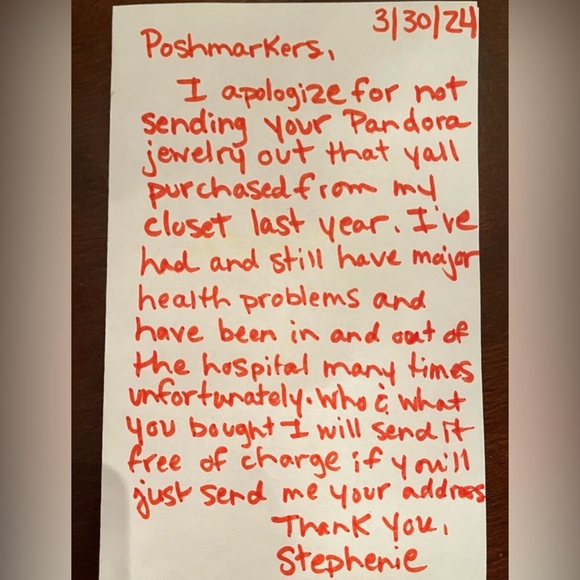 3/30/24
Poshmarkers,
I apologize for not
sending your Pandora
jewelry out that yall
purchased from my
closet last year. I've
had and still have major
health problems and
have been in and out of
the hospital many times
unfortunately. Who & what
you bought I will send it
free of charge if you'll
just send me your address
Thank you,
Stephenie